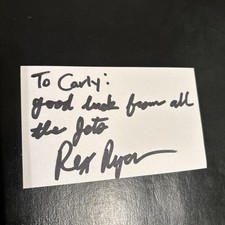 To Carly:
good luck from all
the Jets
Rex Ryan